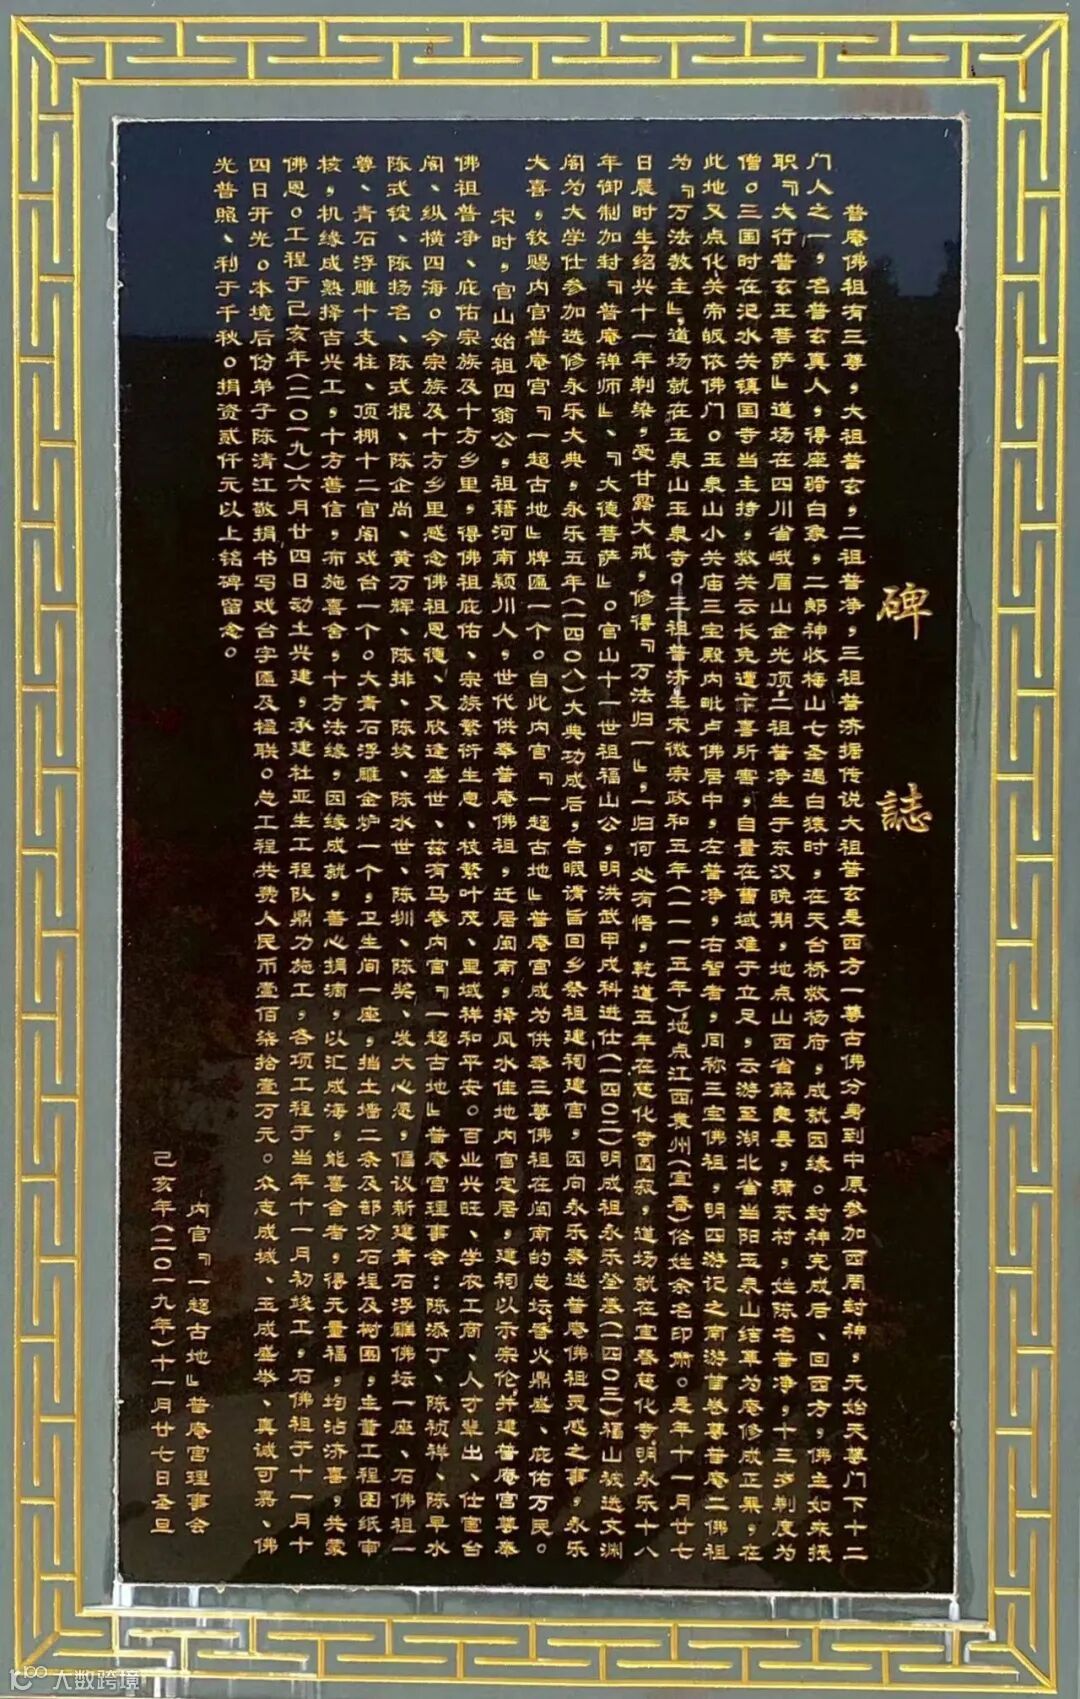 碑誌
普庵佛祖有三尊，大祖普玄，二祖普净，三祖普济据传说大祖普玄是西方一尊古佛分身到中原参加西周封神，元始天尊门下十二
门人之一，名普玄真人，得座骑白象，二郎神收梅山七圣遇白猿时，在天台桥救杨府，成就因缘。封神完成后、回西方，佛主如来授
职『大行普玄王菩萨』道场在四川省峨眉山金光顶，二祖普净生于东汉晚期，地点山西省解良县，蒲东村，姓陈名普净，十三岁剃度为
僧。三国时在汜水关镇国寺当主持，救关云长免遭卞喜所害，自量在旧域难于立足，云游至湖北省当阳玉泉山结草为庵修成正果，在
此地又点化关帝皈依佛门。玉泉山小关庙三宝殿内毗卢佛居中，左普净，右智者，同称三宝佛祖，明四游记之南游首卷尊普庵二佛祖
为『万法教主』，道场就在玉泉山玉泉寺。三祖普济生宋微宗政和五年（一一一五年）地点江西袁州（宜春）俗姓余名印肃。是年十一月廿七
日晨时生，绍兴十一年剃染，受甘露大戒，修得『万法归一』，一归何处有悟，乾道五年在慈化寺圆寂，道场就在宜春慈化寺明永乐十八
年御制加封『普庵禅师』、『大德菩萨』。官山十一世祖福山公，明洪武甲戌科进仕（一四〇二）明成祖永乐登基（一四〇三）福山被选文渊
阁为大学仕参加选修永乐大典，永乐五年（一四〇八）大典功成后，告暇请旨回乡祭祖建祠建宫，因向永乐奏述普庵佛祖灵感之事，永乐
大喜，钦赐内官普庵宫『一超古地』牌匾一个。自此内官『一超古地』普庵宫成为供奉三尊佛祖在闽南的总坛，香火鼎盛、庇佑万民。
宋时，官山始祖四翁公，祖籍河南颍川人，世代供奉普庵佛祖，迁居闽南，择风水佳地内官定居，建祠以示宗伦，并建普庵宫尊奉
佛祖普净、庇佑宗族及十方乡里，得佛祖庇佑、宗族繁衍生息、枝繁叶茂、里域祥和平安。百业兴旺、学农工商、人才辈出、仕宦台
阁、纵横四海。今宗族及十方乡里感念佛祖恩德、又欣逢盛世、兹有马巷内官『一超古地』普庵宫理事会：陈添丁、陈祯祥、陈旱水
陈式锭、陈扬名、陈式棍、陈企尚、黄万辉、陈排、陈坎、陈水世、陈圳、陈奖、发大心愿，倡议新建青石浮雕佛坛一座、石佛祖一
尊、青石浮雕十支柱、顶棚十二官阁戏台一个。大青石浮雕金炉一个，卫生间一座，挡土墙二条及部分石埕及树围，主董工程图纸审
核，机缘成熟择吉兴工，十方善信，布施喜舍，十方法缘，因缘成就，善心捐滴，以汇成海，能喜舍者，得无量福，均沾济喜，共蒙
佛恩。工程于己亥年（二〇一九）六月廿四日动土兴建，承建杜亚生工程队鼎力施工，各项工程于当年十一月初竣工，石佛祖于十一月十
四日开光。本境后份弟子陈清江敬捐书写戏台字匾及楹联。总工程共费人民币壹佰柒拾壹万元。众志成城、玉成盛举、真诚可嘉、佛
光普照、利于千秋。捐资贰仟元以上铭碑留念。
内官『一超古地』普庵宫理事会
己亥年（二〇一九年）十一月廿七日圣旦
大数跨境